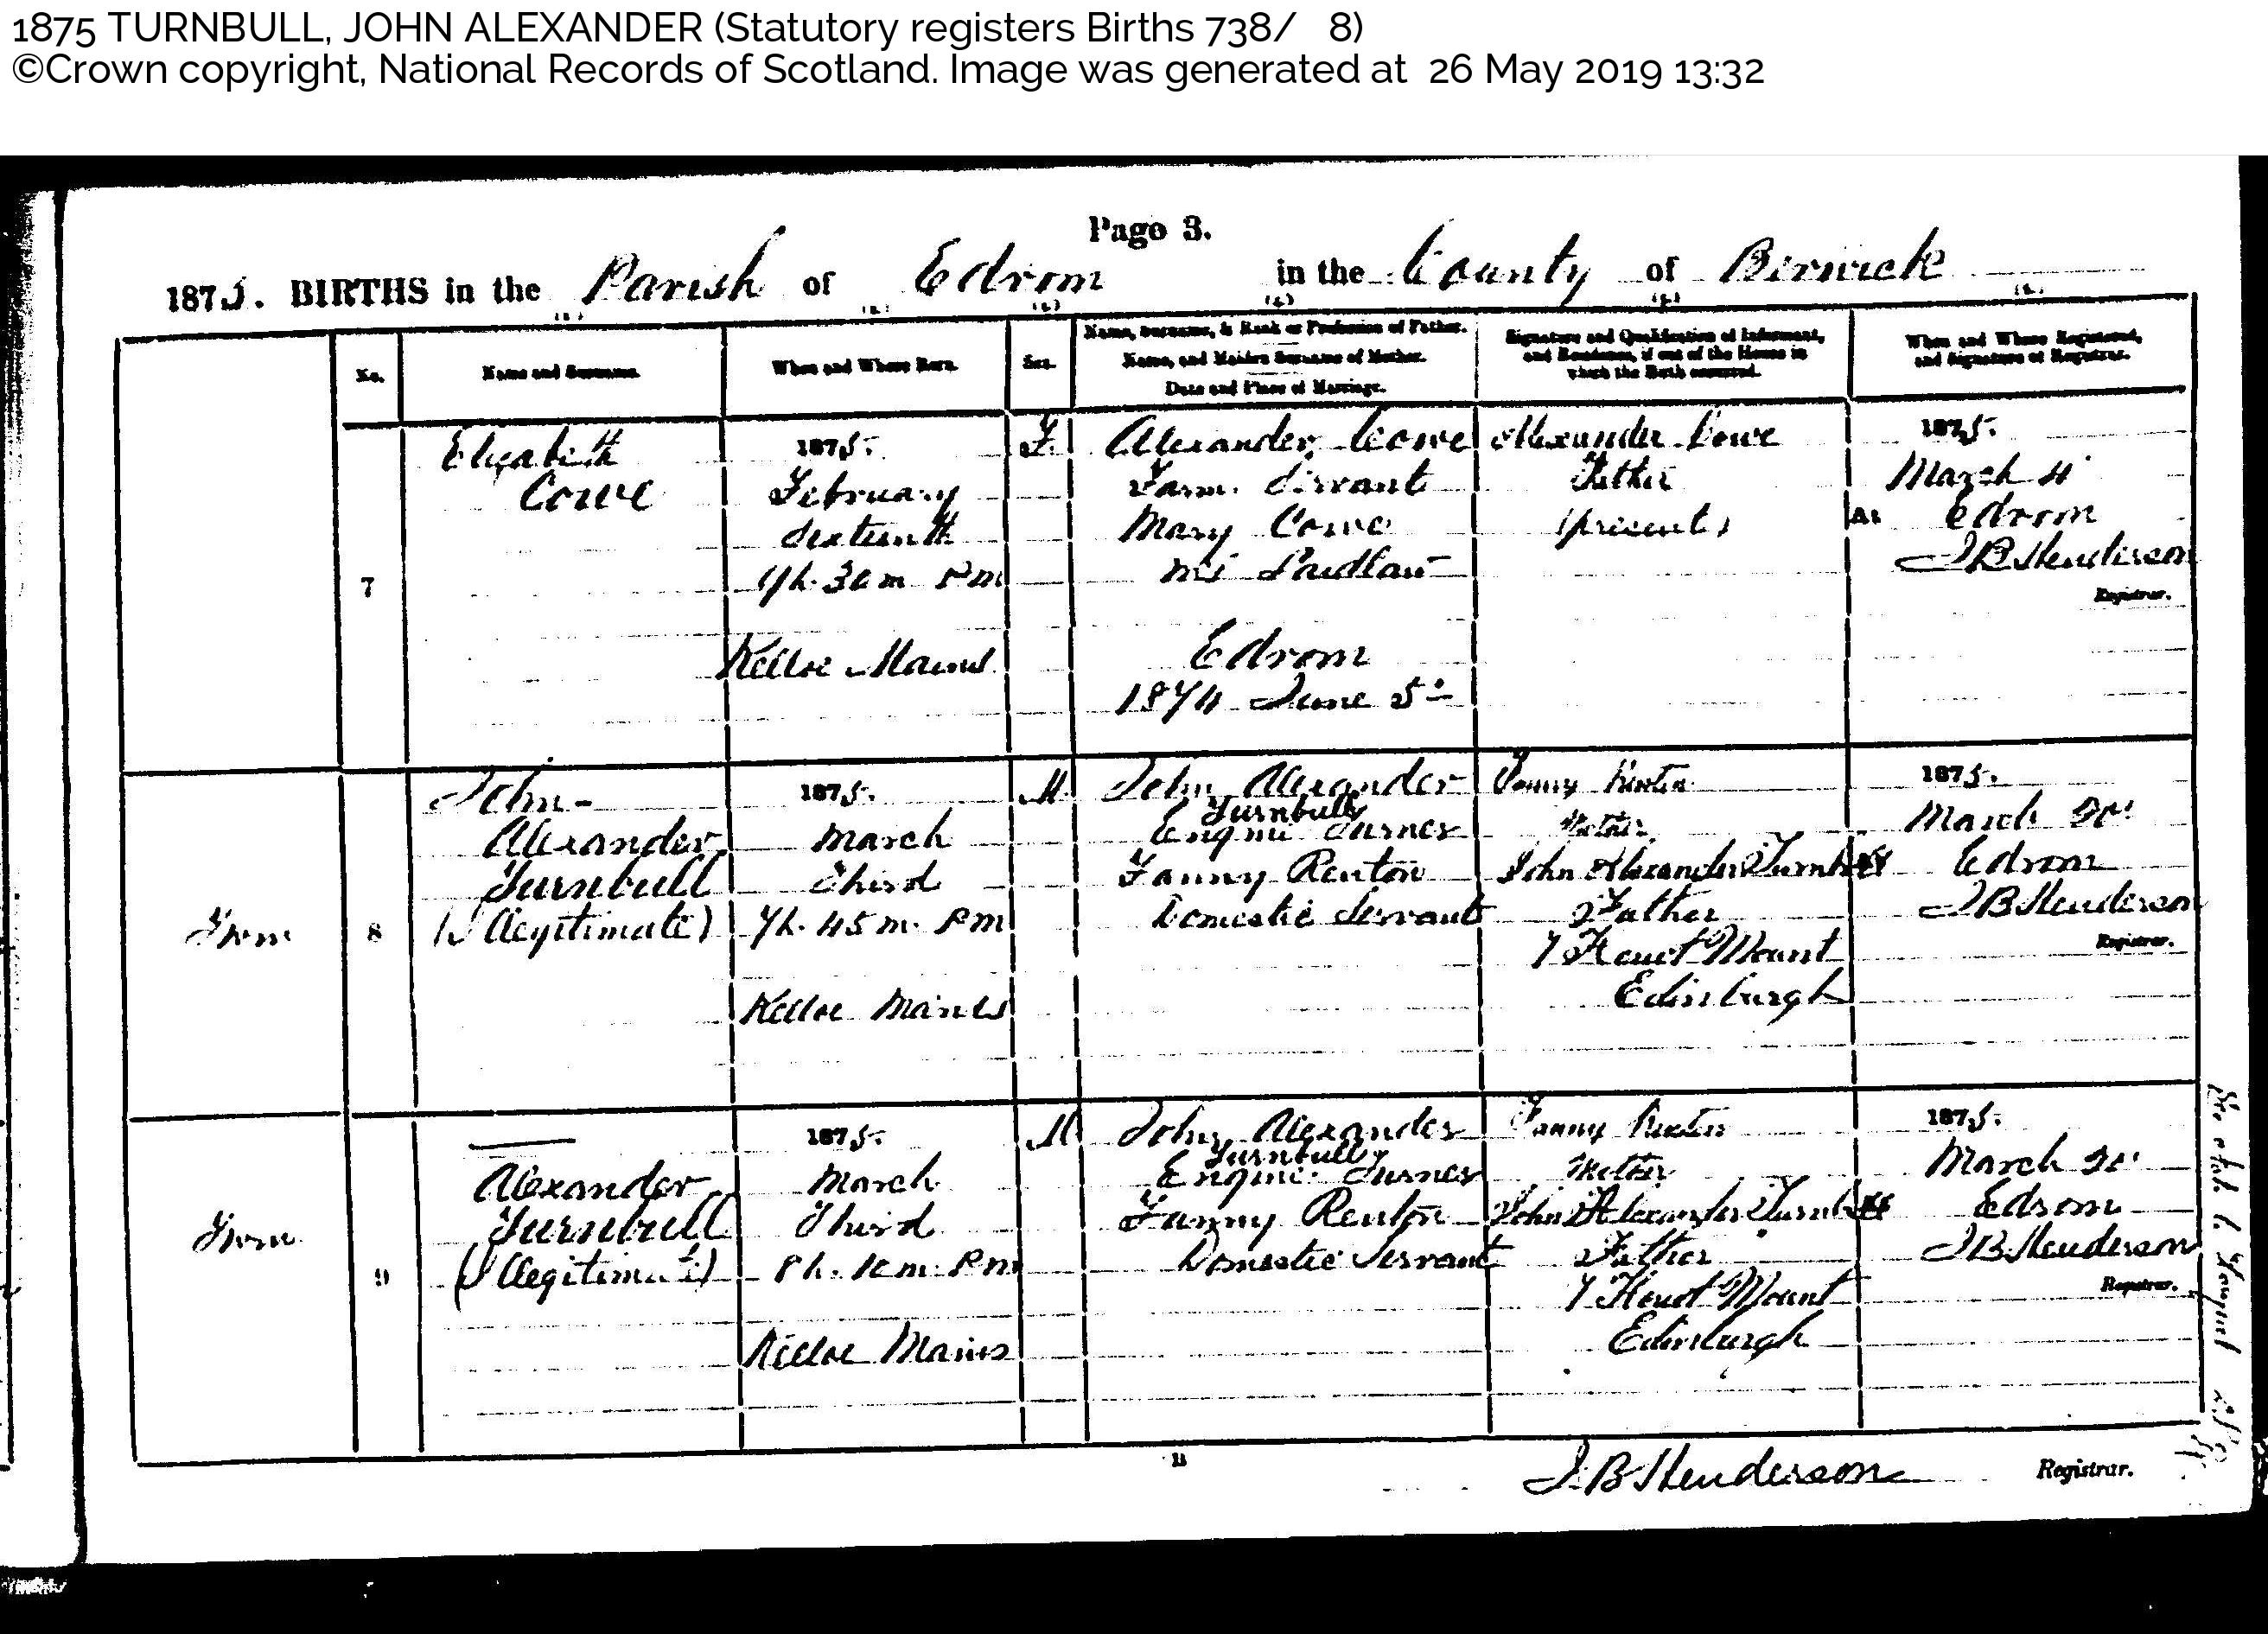 1875 TURNBULL, JOHN ALEXANDER (Statutory registers Births 738/ 8)
©Crown copyright, National Records of Scotland. Image was generated at 26 May 2019 13:32
Page 3.
1875. BIRTHS in the Parish of Edrom in the County of Berwick
No.
Name and Surname.
When and Where Born.
Sex.
Name, Surname, & Rank or Profession of Father.
Name, and Maiden Surname of Mother.
Date and Place of Marriage.
Signature and Qualification of Informant,
and Residence, if out of the House in
which the Birth occurred.
When and Where Registered,
and Signature of Registrar.
7
Elizabeth
Cowe
1875.
February
Sixteenth
7h. 30m PM
Kelloe Mains
F.
Alexander Cowe
Farm Servant
Mary Cowe
ms Laidlaw
Edrom
1874 June 5
Alexander Cowe
Father
(present)
1875.
March 4
At Edrom
J B Henderson
Registrar.
Twin
8
John
Alexander
Turnbull
(Illegitimate)
1875.
March
Third
7h. 45m. PM
Kelloe Mains
M
John Alexander
Turnbull
Engine Turner
Fanny Renton
Domestic Servant
Fanny Renton
Mother
John Alexander Turnbull
Father
7 Heriot Mount
Edinburgh
1875.
March
Edrom
J B Henderson
Registrar.
Twin
9
Alexander
Turnbull
(Illegitimate)
1875.
March
Third
8h. 10m. PM
Kelloe Mains
M
John Alexander
Turnbull
Engine Turner
Fanny Renton
Domestic Servant
Fanny Renton
Mother
John Alexander Turnbull
Father
7 Heriot Mount
Edinburgh
1875.
March
Edrom
J B Henderson
Registrar.
B
J. B Henderson Registrar.